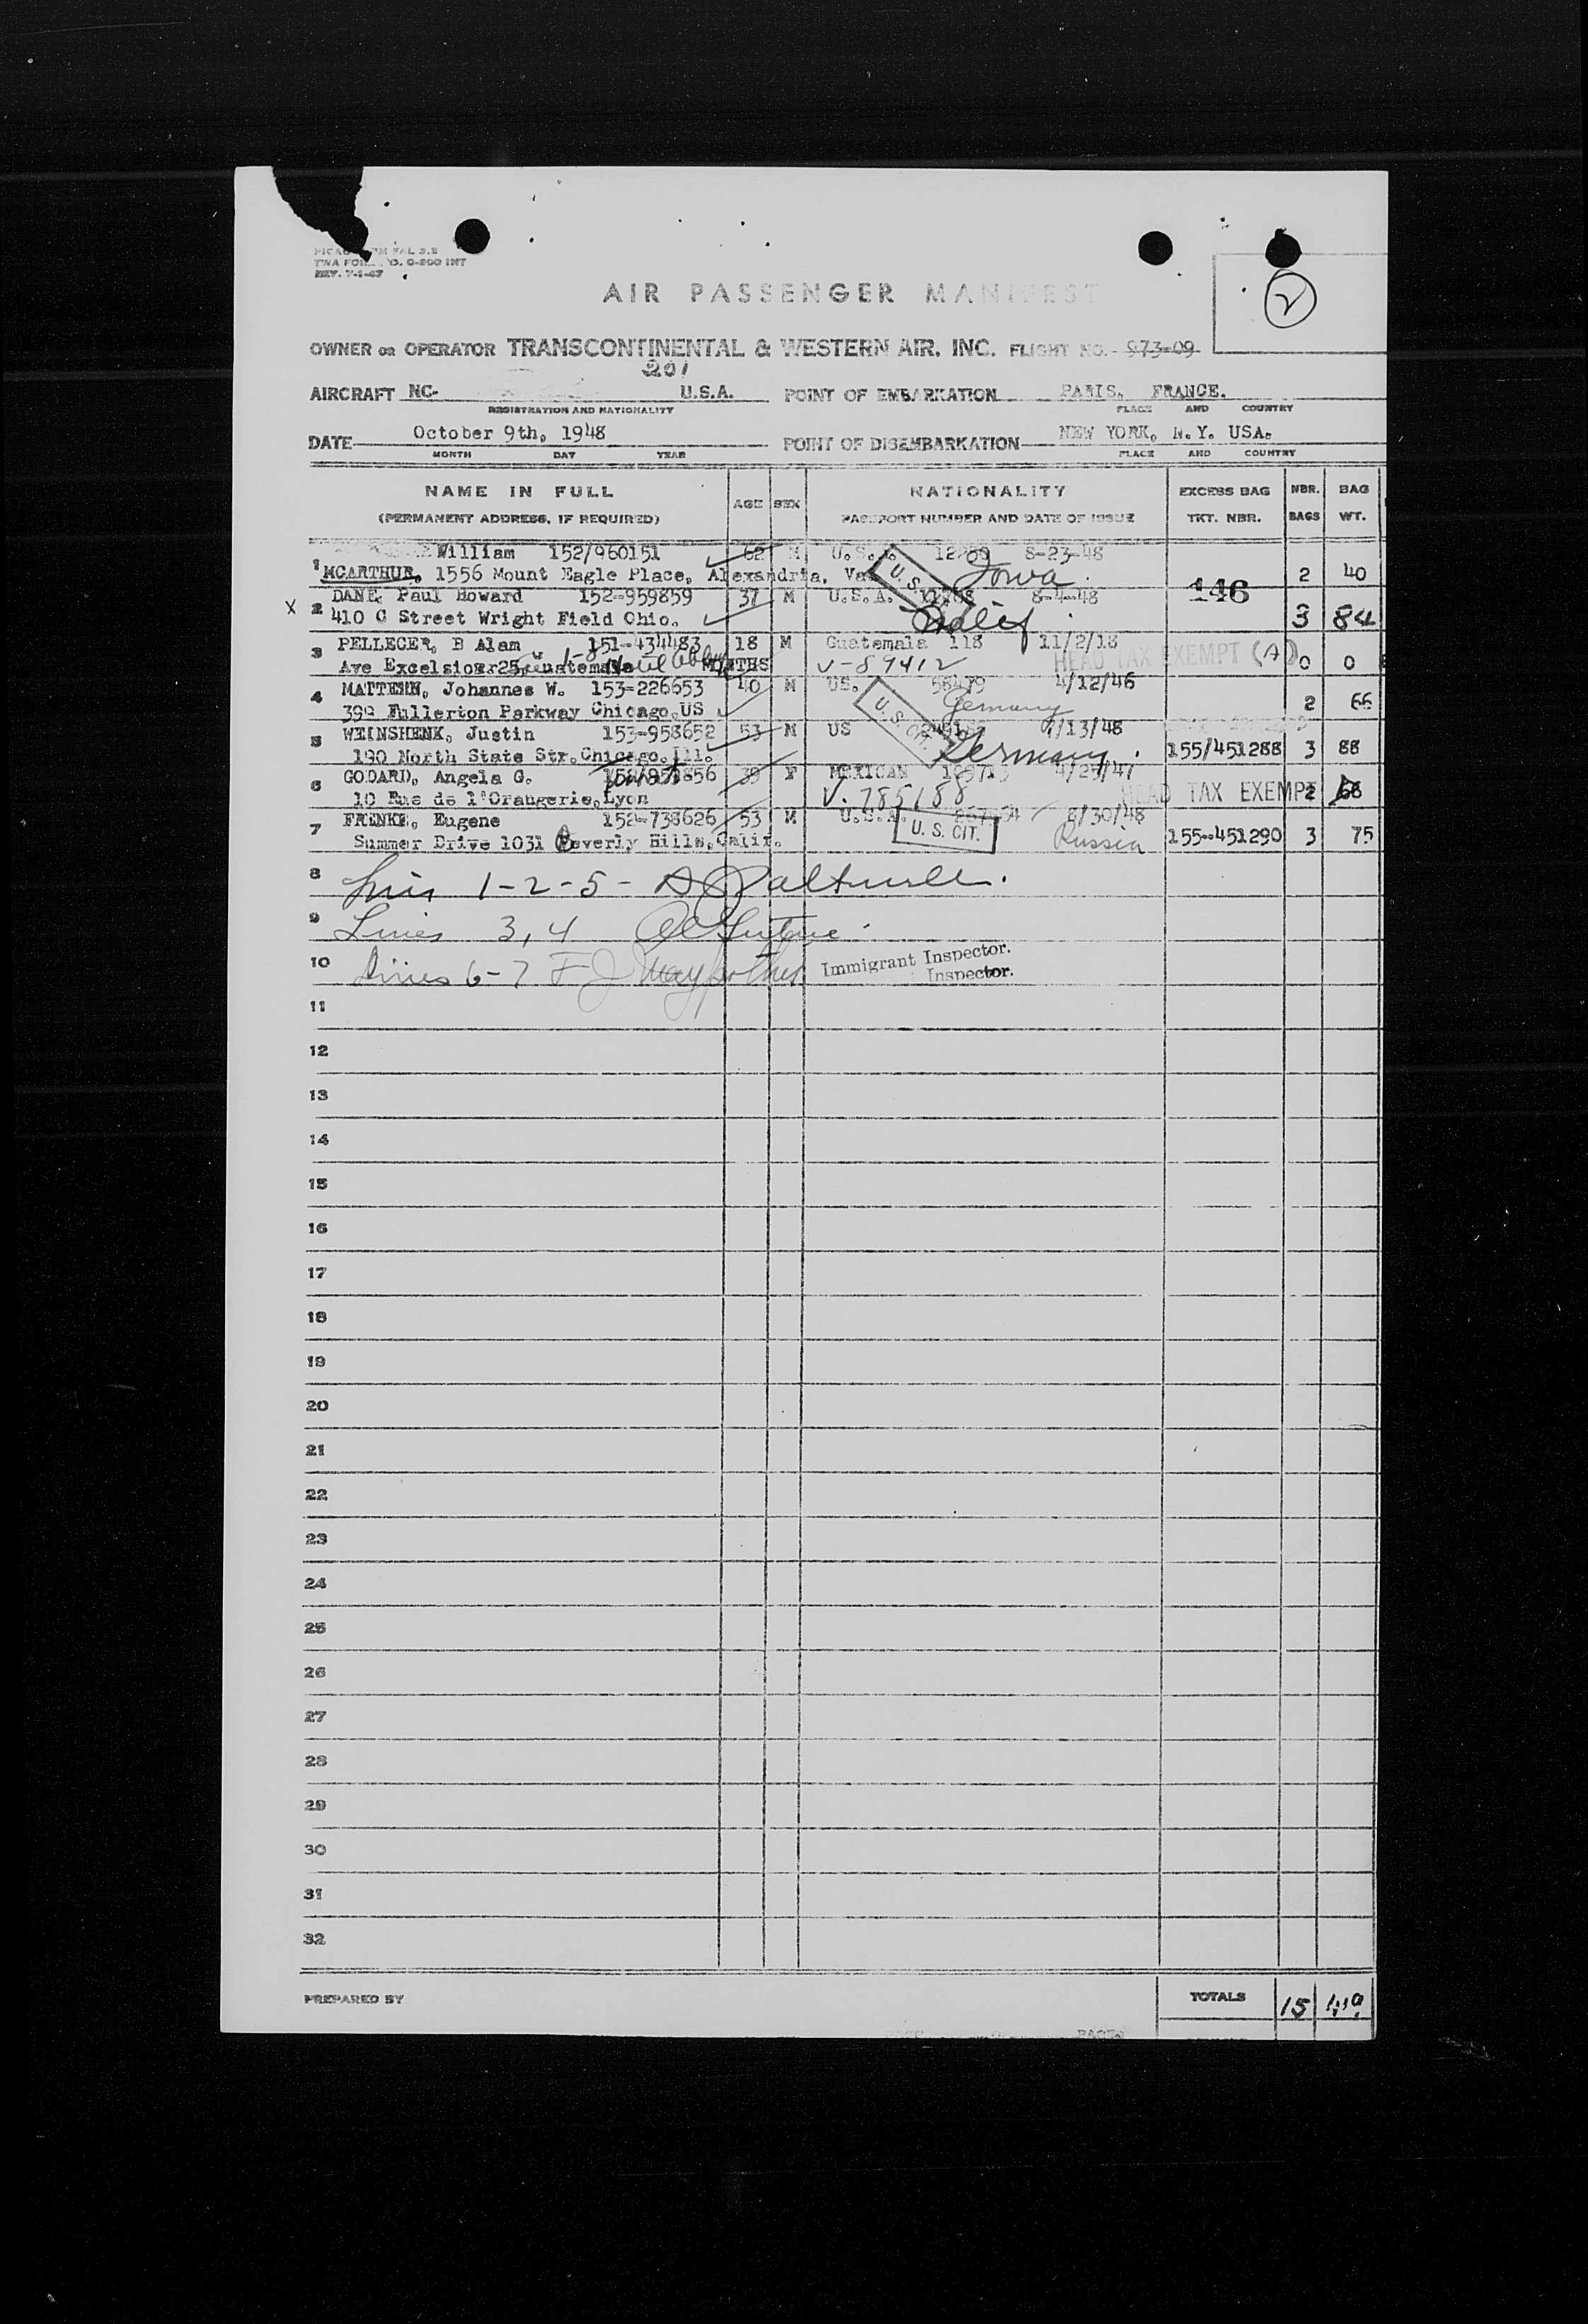 TWA FO 0-800 INT
REV. 7-1-47
AIR PASSENGER MANIFEST
2
OWNER OR OPERATOR TRANSCONTINENTAL & WESTERN AIR, INC. FLIGHT NO. 973-09
201
AIRCRAFT NC- U.S.A. POINT OF EMBARKATION PARIS, FRANCE.
REGISTRATION AND NATIONALITY PLACE AND COUNTRY
DATE October 9th, 1948 POINT OF DISEMBARKATION NEW YORK, N.Y. USA.
MONTH DAY YEAR PLACE AND COUNTRY
NAME IN FULL AGE SEX NATIONALITY EXCESS BAG NBR. BAG
(PERMANENT ADDRESS, IF REQUIRED) PASSPORT NUMBER AND DATE OF ISSUE TKT. NBR. BAGS WT.
William 152/960151 62 M 8-23-48
1 MCARTHUR, 1556 Mount Eagle Place, Alexandria, Va. U.S. Iowa 2 40
146
X 2 DANE, Paul Howard 152-959859 37 M U.S.A. 8-4-48
410 C Street Wright Field Ohio. Calif. 3 84
3 PELLECER, B Alam 151-434483 18 M Guatemala 118 11/2/18
Ave Excelsior 25, Guatemala MONTHS V-89412 HEAD TAX EXEMPT (A) 0 0
4 MATTERN, Johannes W. 153-226653 40 M US. 58479 4/12/46
399 Fullerton Parkway Chicago,US U.S. CIT. Germany 2 66
5 WEINSHENK, Justin 153-958652 53 M US /13/48
190 North State Str. Chicago. Ill. Germany. 155/451288 3 88
6 GODARD, Angela G. 39 F MEXICAN
10 Rue de l'Orangerie, Lyon V. 785188 HEAD TAX EXEMPT 2 66
7 FRENKE, Eugene 152-738626 53 M U.S.A. 8/30/48
Summer Drive 1031 Beverly Hills, Calif. U. S. CIT. Russia 155-451290 3 75
8 1-2-5-
9 Lines 3, 4
10 Lines 6-7 F J Immigrant Inspector.
Inspector.
11
12
13
14
15
16
17
18
19
20
21
22
23
24
25
26
27
28
29
30
31
32
PREPARED BY TOTALS 15